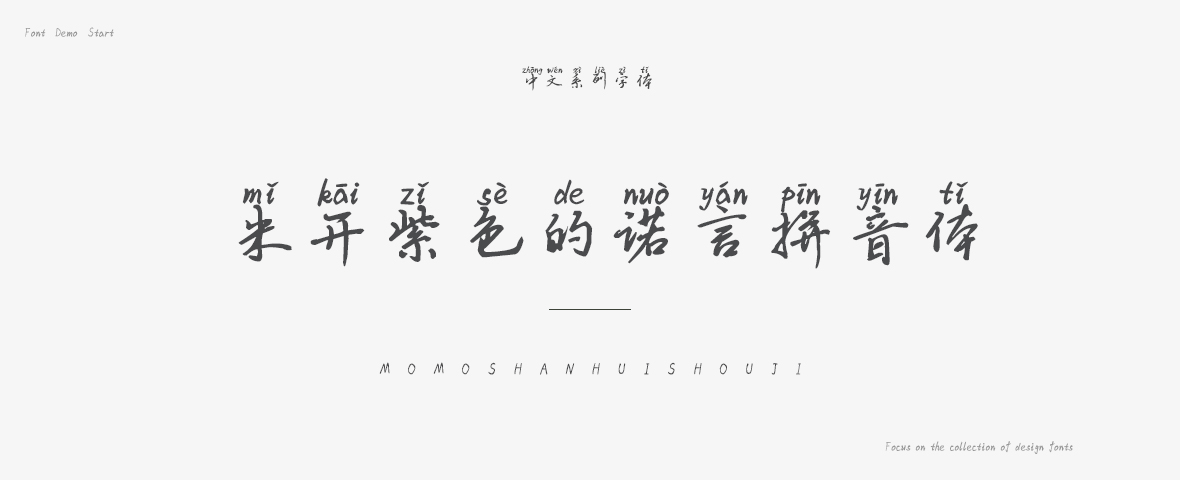 Font Demo Start
zhōng wén xì liè zì tǐ
中文系列字体
mǐ kāi zǐ sè de nuò yán pīn yīn tǐ
米开紫色的诺言拼音体
MOMOSHANHUISHOUJI
Focus on the collection of design fonts